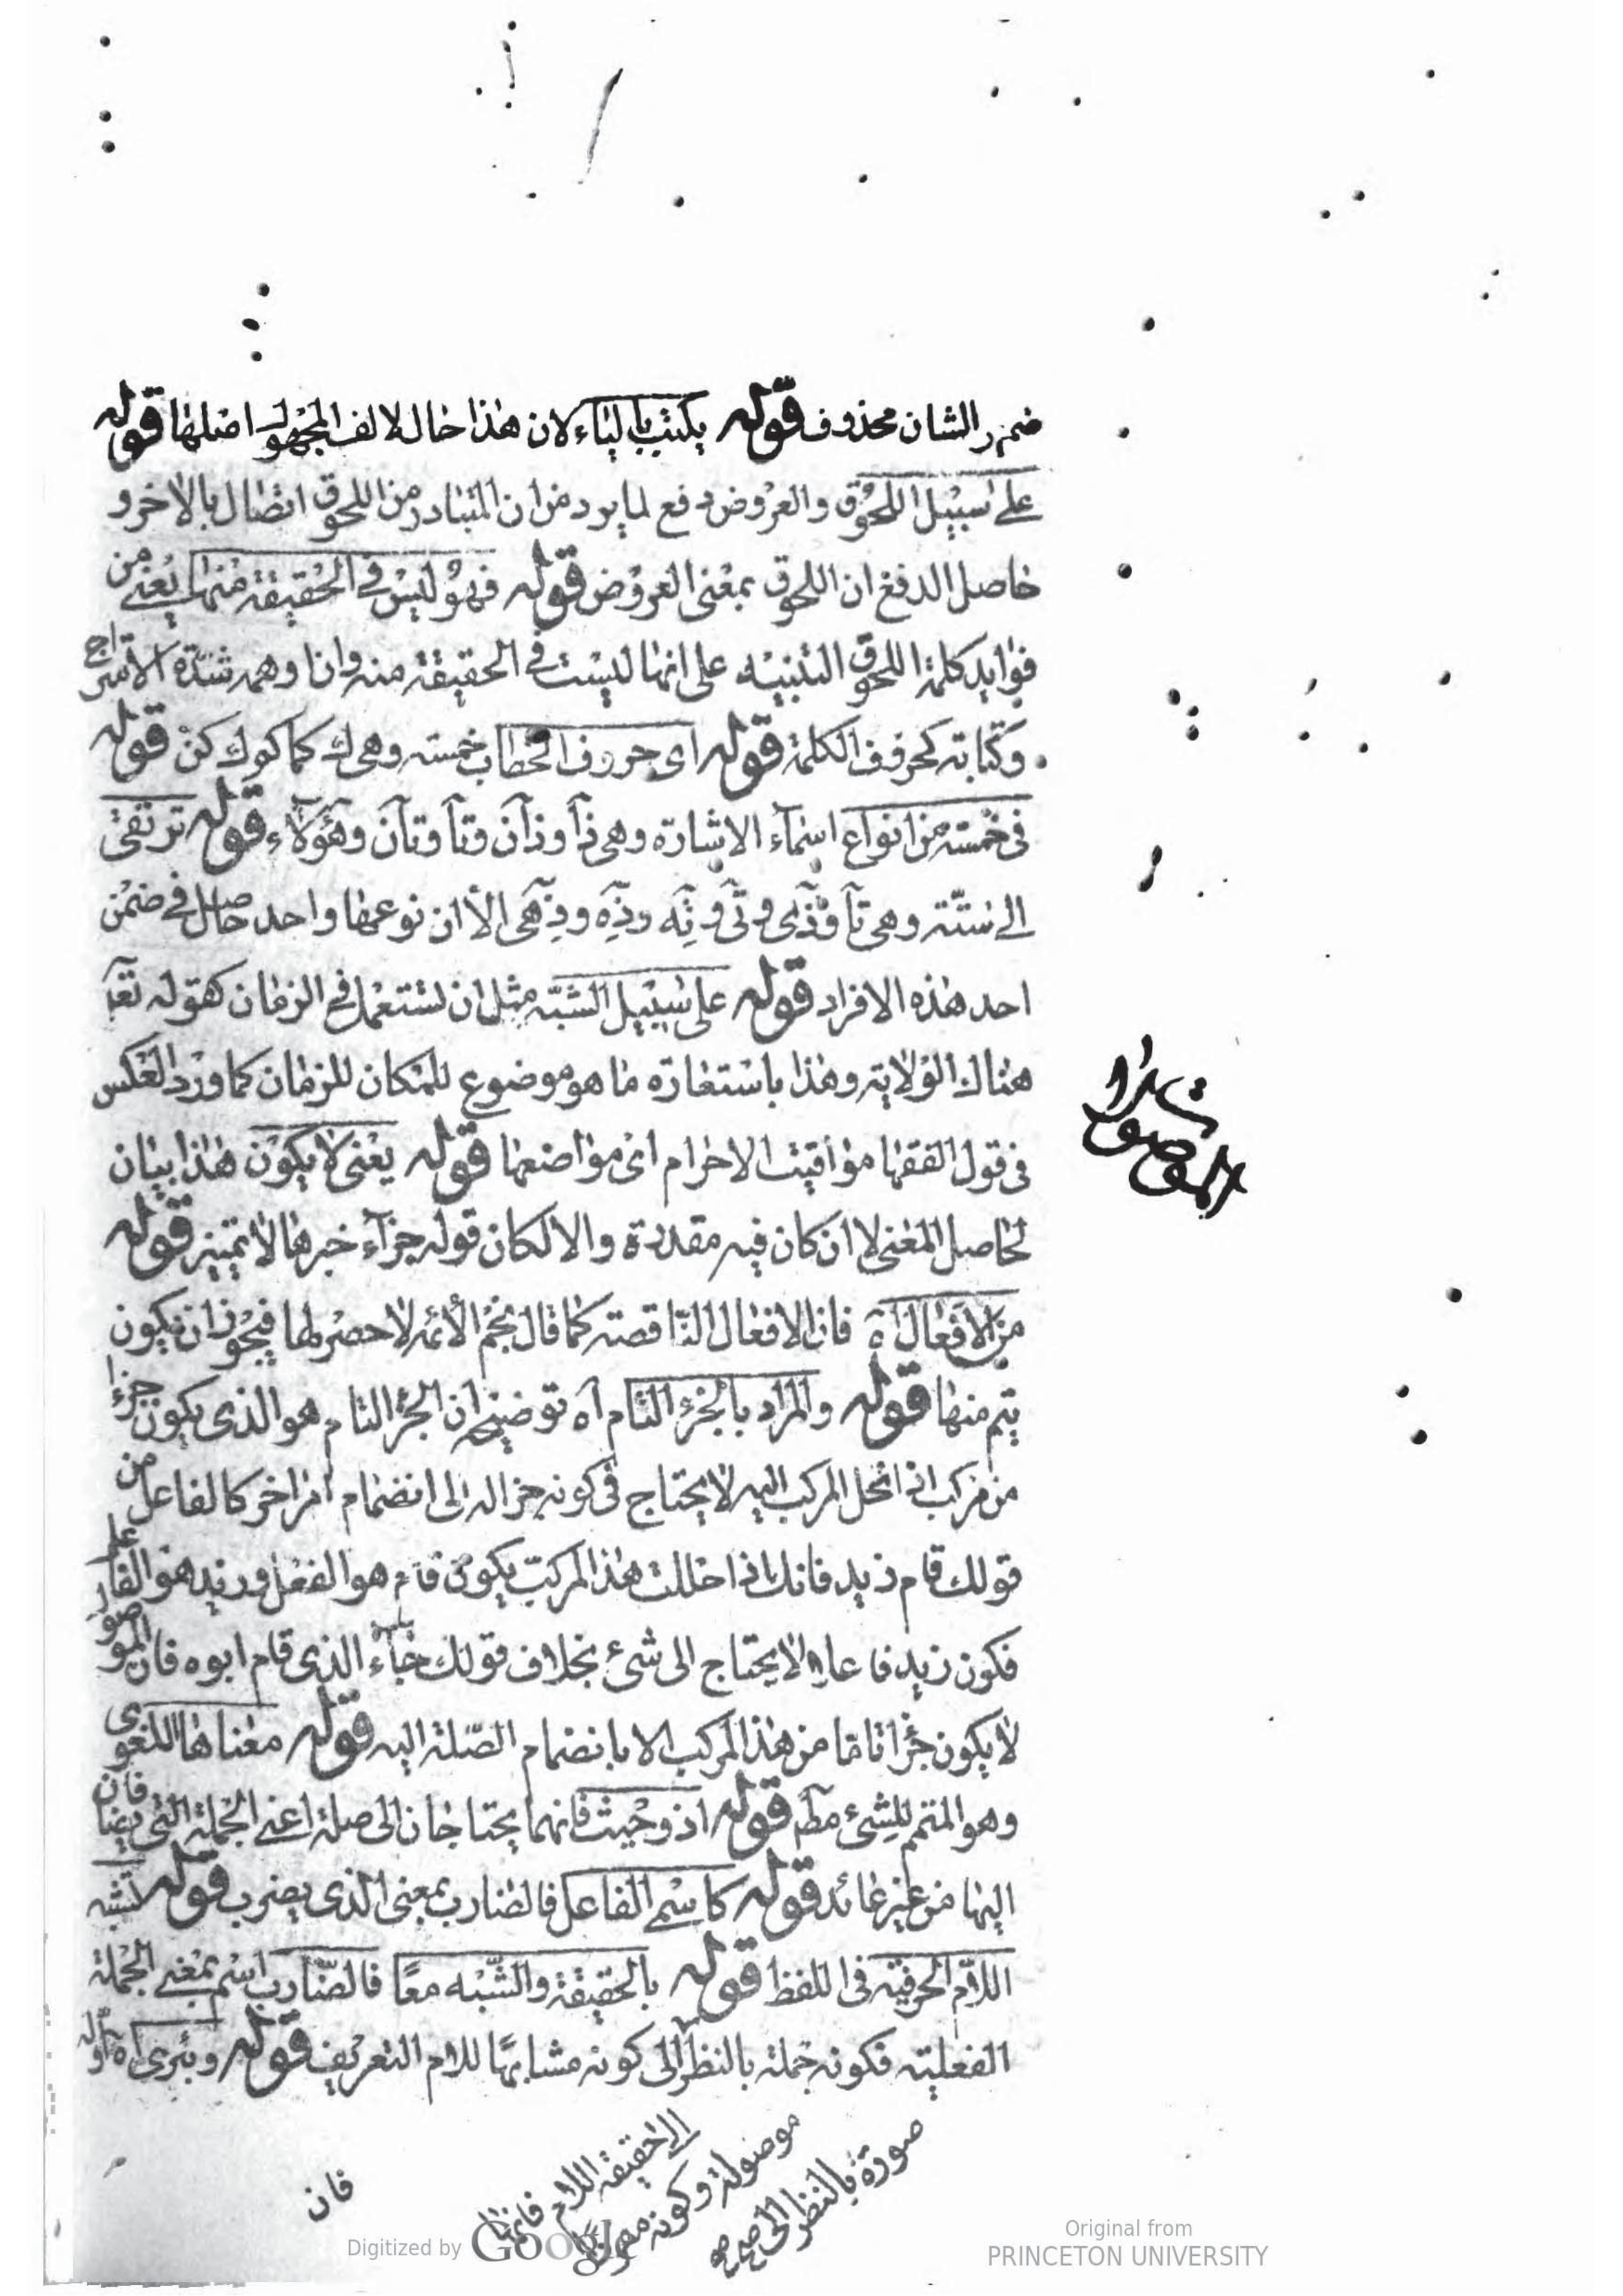 ضمير الشان محذوف قوله يكتب بالياء لان هذا حال الالف المجهولة اصلها قوله
على سبيل اللحوق والعروض دفع لما يرد من ان المتبادر من اللحوق اتصال بالاخر و
حاصل الدفع ان اللحوق بمعنى العروض قوله فهو ليس في الحقيقة منها يعنى من
فوايد كلمة اللحوق التنبيه على انها ليست في الحقيقة منه وان اوهم شدة الامتزاج
وكتابته كحروف الكلمة قوله اى حروف الخطاب خمسة وهى ك كما كم ك كن قوله
فى خمسة من انواع اسماء الاشارة وهى ذا وذان وتا وتان وهؤلاء قوله ترتقى
الى ستة وهى تا وذى وتى وته وذه وذهى الا ان نوعها واحد حاصل في ضمن
احد هذه الافراد قوله على سبيل الشبه مثل ان تستعمل في الزمان كقوله تعا
هناك الولاية وهذا باستعارة ما هو موضوع للمكان للزمان كما ورد العكس
فى قول الفقها مواقيت الاحرام اى مواضعها قوله يعنى لا يكون هذا بيان
لحاصل المعنى لا ان كان فيه مقدرة والا لكان قوله جزآء خبرها لا تميز قوله
من الافعال اه فان الافعال الناقصة كما قال نجم الأئمه لا حصر لها فيجوز ان يكون
يتم منها قوله والمراد بالجزء التام آه توضيحه ان الجزء التام هو الذى يكون جزءا
من مركب اذا انحل المركب اليه لا يحتاج فى كونه جزا له الى انضمام امر اخر كالفاعل من
قولك قام زيد فانك اذا حللت هذا المركب يكون قام هو الفعل وزيد هو الفاعل
فكون زيد فاعلا لا يحتاج الى شىء بخلاف قولك جاء الذى قام ابوه فان الموصول
لا يكون جزا تاما من هذا المركب الا بانضمام الصلة اليه قوله معناها اللغوى
وهو المتمم للشىء مط قوله اذ وحيث فانهما يحتاجان الى صلة اعنى الجملة التى يضافان
اليها من غير عائد قوله كاسم الفاعل فالضارب بمعنى الذى يضرب قوله لشبه
اللام الحرفية فى اللفظ قوله بالحقيقة والشبه معا فالضارب اسم بمعنى الجملة
الفعلية فكونه جملة بالنظر الى كونه مشابها للام التعريف قوله
الى حقيقة اللام فانها
موصولة وكونه مفردا
صورة بالنظر الى صح
فان
الموصولات
Digitized by Google
Original from
PRINCETON UNIVERSITY